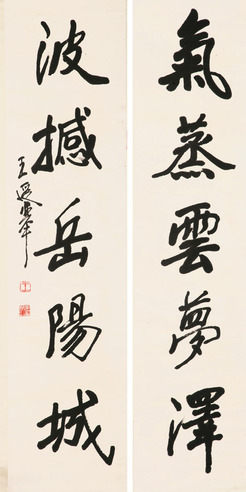 氣蒸雲夢澤
波撼岳陽城
王遐舉